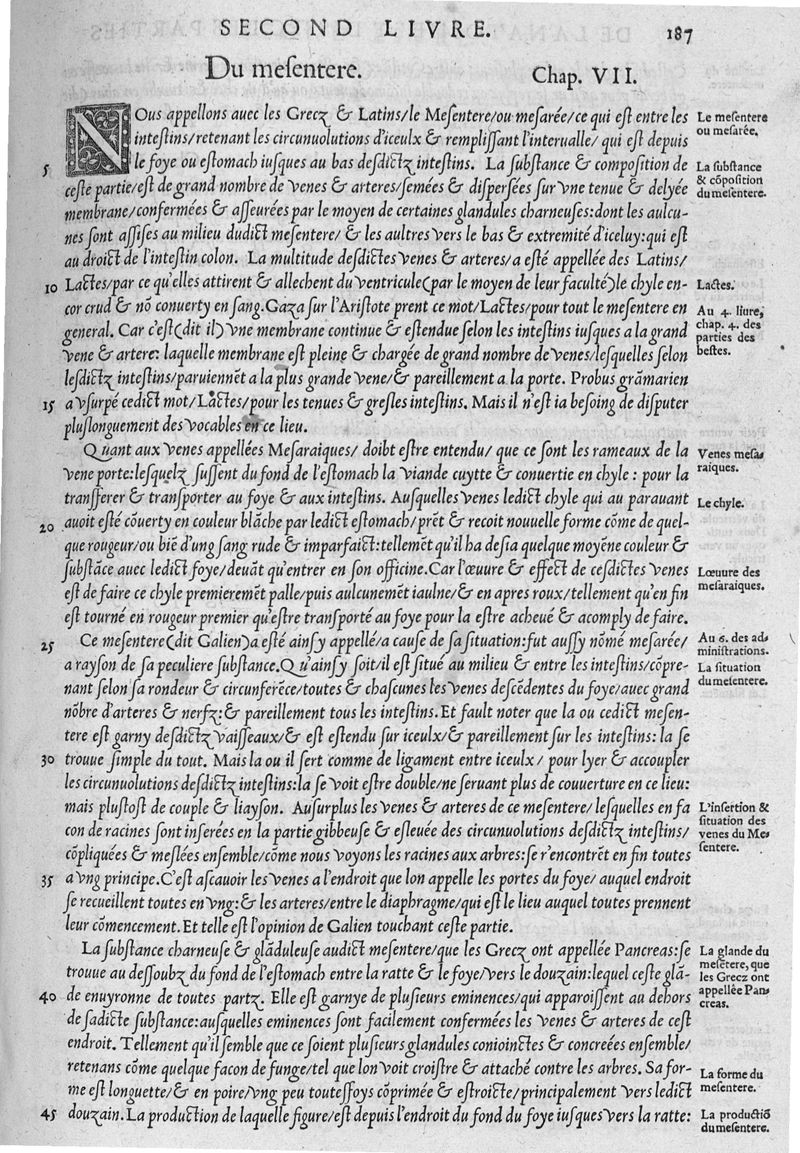 SECOND LIVRE. 187
Du mesentere. Chap. VII.
NOus appellons auec les Grecz & Latins/le Mesentere/ou mesarée/ce qui est entre les
intestins/retenant les circunuolutions d'iceulx & remplissant l'interualle/ qui est depuis
le foye ou estomach iusques au bas desdictz intestins. La substance & composition de
ceste partie/est de grand nombre de venes & arteres/semées & dispersées sur vne tenue & delyée
membrane/confermées & asseurées par le moyen de certaines glandules charneuses:dont les aulcu-
nes sont assises au milieu dudict mesentere/ & les aultres vers le bas & extremité d'iceluy:qui est
au droict de l'intestin colon. La multitude desdictes venes & arteres/a esté appellée des Latins/
Lactes/par ce qu'elles attirent & allechent du ventricule(par le moyen de leur faculté)le chyle en-
cor crud & nõ conuerty en sang. Gaza sur l'Aristote prent ce mot/Lactes/pour tout le mesentere en
general. Car c'est(dit il)vne membrane continue & estendue selon les intestins iusques a la grand
vene & artere: laquelle membrane est pleine & chargée de grand nombre de venes/lesquelles selon
lesdictz intestins/paruiennẽt a la plus grande vene/& pareillement a la porte. Probus grãmarien
a vsurpé cedict mot/Lactes/pour les tenues & gresles intestins. Mais il n'est ia besoing de disputer
pluslonguement des vocables en ce lieu.
Quant aux venes appellées Mesaraiques/ doibt estre entendu/ que ce sont les rameaux de la
vene porte:lesquelz sussent du fond de l'estomach la viande cuytte & conuertie en chyle : pour la
transferer & transporter au foye & aux intestins. Ausquelles venes ledict chyle qui au parauant
auoit esté cõuerty en couleur blãche par ledict estomach/prẽt & recoit nouuelle forme cõme de quel-
que rougeur/ou biẽ d'ung sang rude & imparfaict:tellemẽt qu'il ha desia quelque moyẽne couleur &
substãce auec ledict foye/deuãt qu'entrer en son officine. Car l'œuure & effect de cesdictes venes
est de faire ce chyle premieremẽt palle/puis aulcunemẽt iaulne/& en apres roux/tellement qu'en fin
est tourné en rougeur premier qu'estre transporté au foye pour la estre acheué & acomply de faire.
Ce mesentere(dit Galien)a esté ainsy appellé/a cause de sa situation:fut aussy nõmé mesarée/
a rayson de sa peculiere substance. Qu'ainsy soit/il est situé au milieu & entre les intestins/cõpre-
nant selon sa rondeur & circunferẽce/toutes & chascunes les venes descẽdentes du foye/auec grand
nõbre d'arteres & nerfz:& pareillement tous les intestins. Et fault noter que la ou cedict mesen-
tere est garny desdictz vaisseaux/& est estendu sur iceulx/& pareillement sur les intestins: la se
trouue simple du tout. Mais la ou il sert comme de ligament entre iceulx / pour lyer & accoupler
les circunuolutions desdictz intestins:la se voit estre double/ne seruant plus de couuerture en ce lieu:
mais plustost de couple & liayson. Ausurplus les venes & arteres de ce mesentere/ lesquelles en fa
con de racines sont inserées en la partie gibbeuse & esleuée des circunuolutions desdictz intestins/
cõpliquées & meslées ensemble/cõme nous voyons les racines aux arbres:se r'encontrẽt en fin toutes
a vng principe. C'est ascauoir les venes a l'endroit que lon appelle les portes du foye/ auquel endroit
se recueillent toutes en vng:& les arteres/entre le diaphragme/qui est le lieu auquel toutes prennent
leur cõmencement. Et telle est l'opinion de Galien touchant ceste partie.
La substance charneuse & glãduleuse audict mesentere/que les Grecz ont appellée Pancreas:se
trouue au dessoubz du fond de l'estomach entre la ratte & le foye/vers le douzain:lequel ceste glã-
de enuyronne de toutes partz. Elle est garnye de plusieurs eminences/qui apparoissent au dehors
de sadicte substance:ausquelles eminences sont facilement confermées les venes & arteres de cest
endroit. Tellement qu'il semble que ce soient plusieurs glandules conioinctes & concreées ensemble/
retenans cõme quelque facon de funge/tel que lon voit croistre & attaché contre les arbres. Sa for-
me est longuette/& en poire/vng peu toutessoys cõprimée & estroicte/principalement vers ledict
douzain. La production de laquelle figure/est depuis l'endroit du fond du foye iusques vers la ratte:
5
10
15
20
25
30
35
40
45
Le mesentere
ou mesarée.
La substance
& cõposition
du mesentere.
Lactes.
Au 4. liure,
chap. 4. des
parties des
bestes.
Venes mesa-
raiques.
Le chyle.
Lœuure des
mesaraiques.
Au 6. des ad-
ministrations.
La situation
du mesentere.
L'insertion &
situation des
venes du Me-
sentere.
La glande du
mesẽtere, que
les Grecz ont
appellée Pan-
creas.
La forme du
mesentere.
La productiõ
du mesentere.